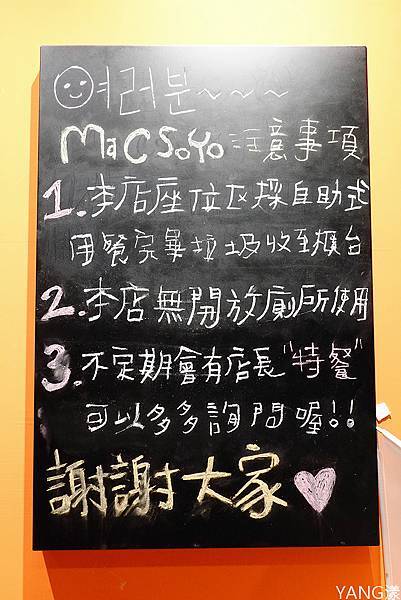 여러분~~~
MaCSoYo 注意事項
1. 本店座位區採自助式
用餐完畢垃圾收至櫃台
2. 本店無開放廁所使用
3. 不定期會有店長"特餐"
可以多多詢問喔!!
謝謝大家♥
YANG漾